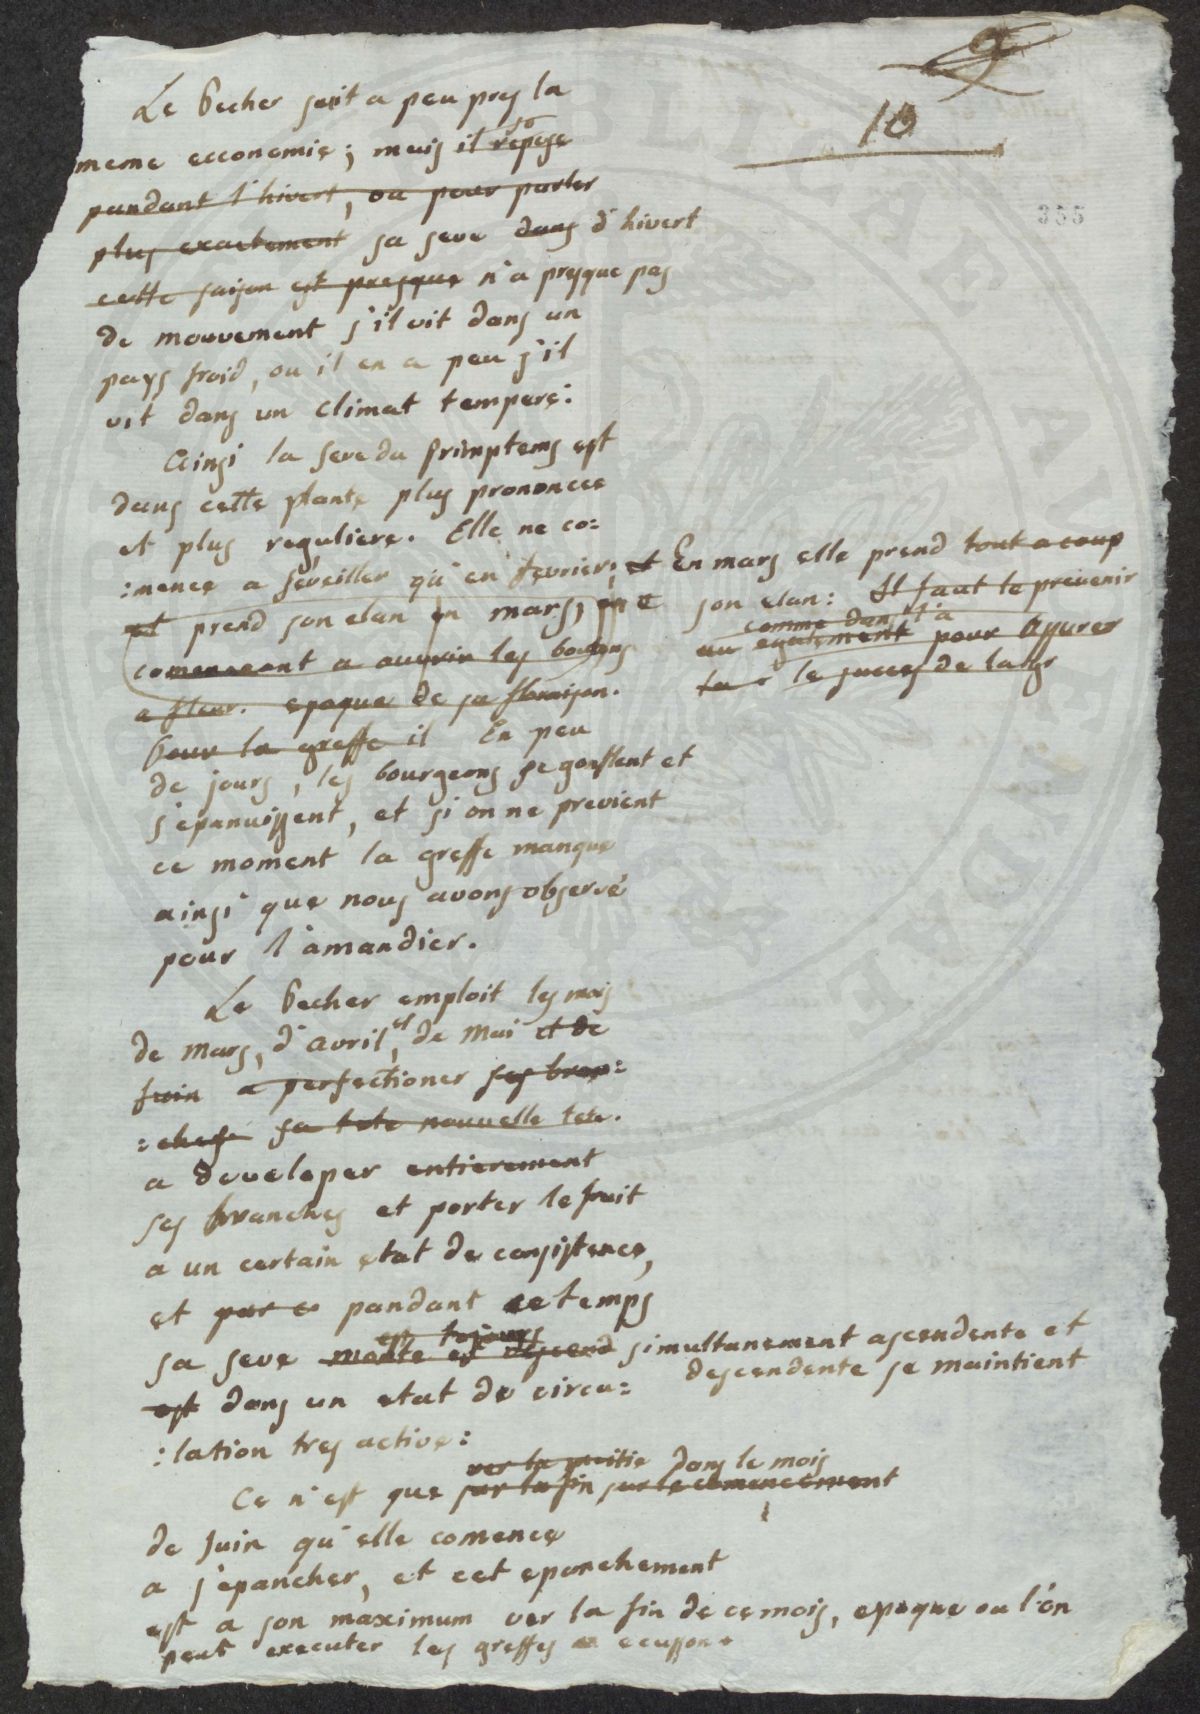 10
355
Le Pecher suit a peu pres la
meme œconomie; mais il se repose
pandant l'hivert, ou pour parler
plus exactement sa seve dans d'hivert
cette saison est presque n'a presque pas
de mouvement s'il vit dans un
pays froid, ou il en a peu s'il
vit dans un climat temperé:
Ainsi la seve du printemps est
dans cette plante plus prononcée
et plus reguliere. Elle ne co:
:mence a s'eveiller qu'en fevrier; et En mars elle prend tout a coup
et prend son elan en mars, son elan: Il faut le prevenir
comme dans l'a
comenceant a ouvrir les boutons egalement pour assurer
a fleur. epoque de sa floraison. le succes de la
Pour la greffe il En peu
de jours, les bourgeons se gonflent et
s'epanuissent, et si on ne previent
ce moment la greffe manque
ainsi que nous avons observé
pour l'amandier.
Le Pecher emploit les mois
de mars, d'avril, et de mai et de
juin a perfectioner ses bran:
:ches sa tete nouvelle tete.
a developer entierement
ses branches et porter le fruit
a un certain etat de consistence,
et par ce pandant ce temps
est tojours
sa seve monte et descend simultanement ascendente et
est dans un etat de circu: descendente se maintient
:lation tres active:
ver la moitie dans le mois
Ce n'est que sur la fin sur le comencement
de juin qu'elle comence
a s'epancher, et cet epanchement
est a son maximum ver la fin de ce mois, epoque ou l'on
peut executer les greffes a ecusson.